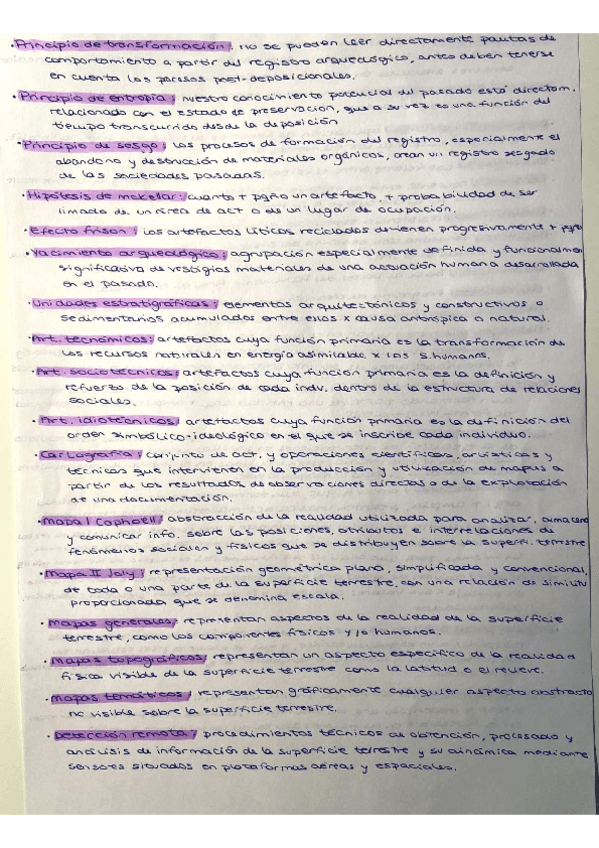 ·Principio de transformación: no se pueden leer directamente pautas de
comportamiento a partir del registro arqueológico, antes deben tenerse
en cuenta los procesos post-deposicionales.
·Principio de entropía: nuestro conocimiento potencial del pasado está directam.
relacionado con el estado de preservación, que a su vez es una función del
tiempo transcurrido desde la deposición
·Principio de sesgo: los procesos de formación del registro, especialmente el
abandono y destrucción de materiales orgánicos, crean un registro sesgado
de las sociedades pasadas.
·Hipótesis de mckellar: cuanto + pqño un artefacto, + probabilidad de ser
limado de un área de act o de un lugar de ocupación.
·Efecto frison: los artefactos líticos reciclados devienen progresivamente + pqñ
·Yacimiento arqueológico: agrupación especialmente definida y funcionalmen
significativa de vestigios materiales de una actuación humana desarrollada
en el pasado.
·Unidades estratigráficas: elementos arquitectónicos y constructivos o
sedimentarios acumulados entre ellos x causa antrópica o natural.
·Art. tecnómicos: artefactos cuya función primaria es la transformación de
los recursos naturales en energía asimilable x los s.humanos.
·Art. sociotécnicos: artefactos cuya función primaria es la definición y
refuerzo de la posición de cada indiv. dentro de la estructura de relaciones
sociales.
·Art. idiotécnicos: artefactos cuya función primaria es la definición del
orden simbólico-ideológico en el que se inscribe cada individuo.
·Cartografía: conjunto de act. y operaciones científicas, artísticas y
técnicas que intervienen en la producción y utilización de mapas a
partir de los resultados de observaciones directas o de la explotación
de una documentación.
·Mapa I Caphoell: abstracción de la realidad utilizada para analizar, almacena
y comunicar info. sobre las posiciones, atributos e interrelaciones de
fenómenos sociales y físicos que se distribuyen sobre la superfi. terrestre
·Mapa II Joly: representación geométrica plana, simplificada y convencional,
de toda o una parte de la superficie terrestre, con una relación de similitu
proporcionada que se denomina escala.
·Mapas generales: representan aspectos de la realidad de la superficie
terrestre, como los componentes físicos y/o humanos.
·Mapas topográficos: representan un aspecto específico de la realidad
física visible de la superficie terrestre como la latitud o el relieve.
·Mapas temáticos: representan gráficamente cualquier aspecto abstracto
no visible sobre la superficie terrestre.
·Detección remota: procedimientos técnicos de obtención, procesado y
análisis de información de la superficie terrestre y su dinámica mediante
sensores situados en plataformas aéreas y espaciales.